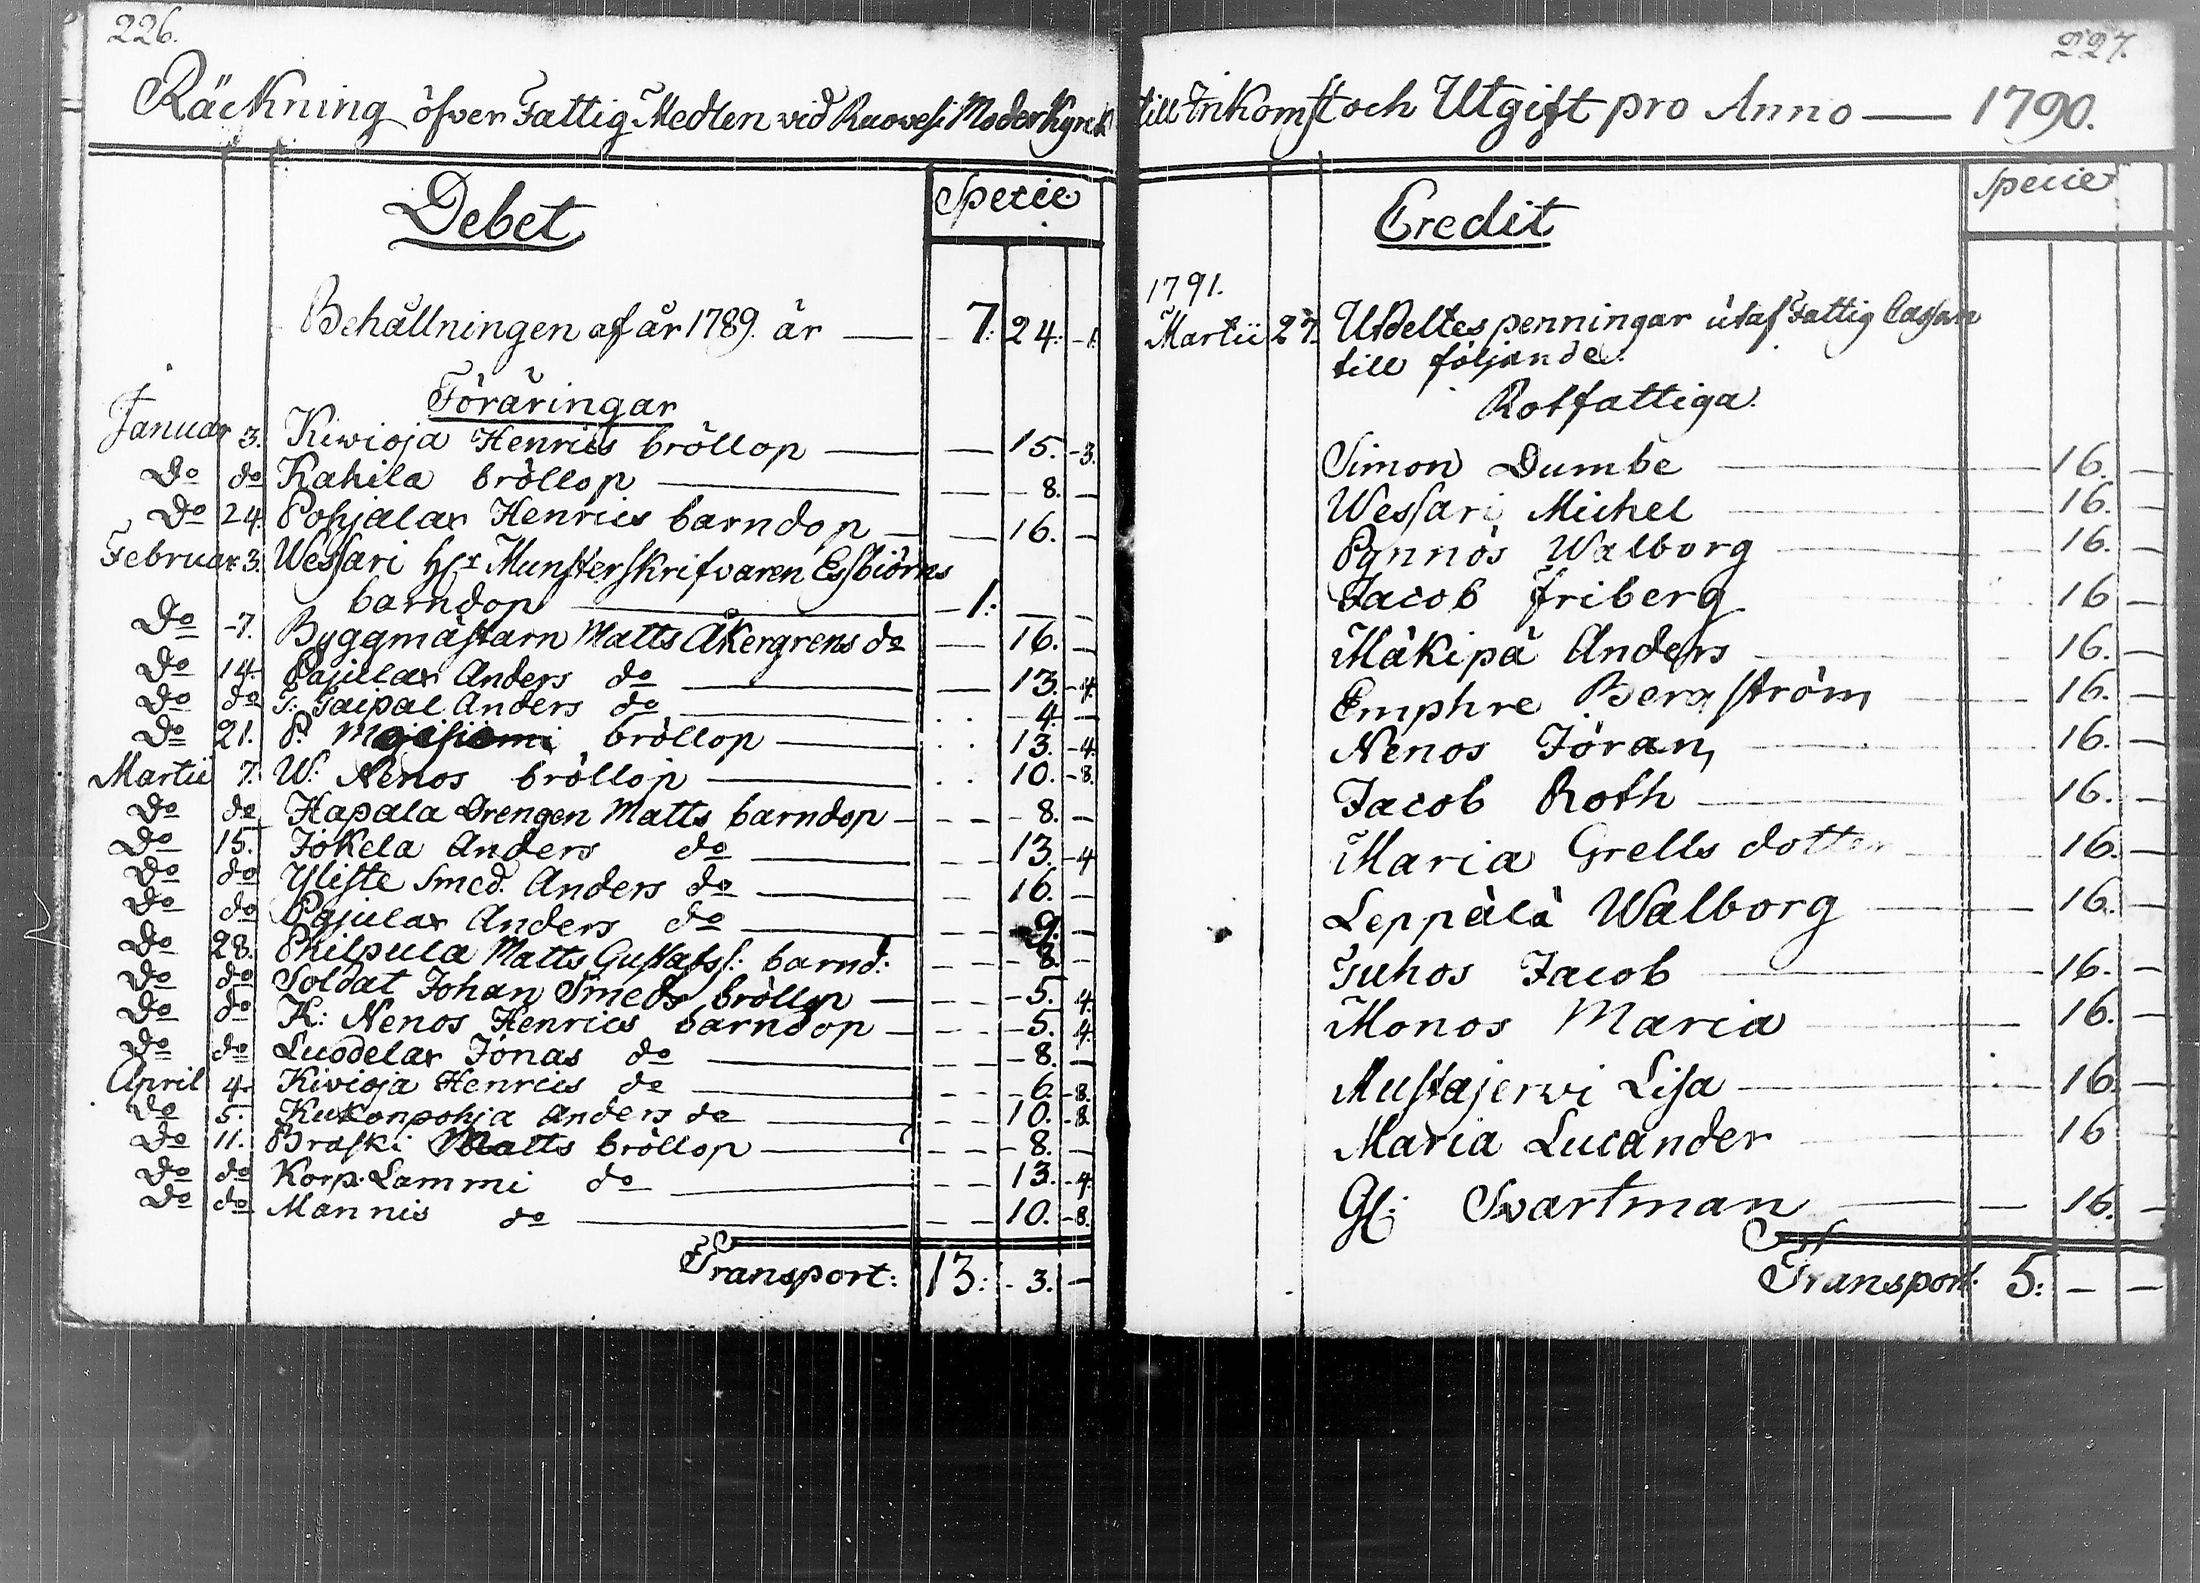 226.
Räckning öfver Fattig Medlen vid Ruovesi Moder Kyrck
Debet
Specie
Behållningen af år 1789. är — 7: 24. 1.
Föräringar
Januar 3. Kiwioja Henrics bröllop — 15. 3.
do do Kahila bröllop — 8. —
do 24. Pohjalax Henrics barndop — 16. —
Februar 3. Wessari Hr Munsterskrifvaren Essbiörns
barndop — 1: — —
do 7. Byggmästarn Matts Åkergrens do — 16. —
do 14. Pajulax Anders do — 13. 4.
do do T: Taipal Anders do — 4. —
do 21. P. bröllop — 13. 4.
Martii 7. W: Nenos bröllop — 10. 8.
do do Hapala Drengen Matts barndop — 8. —
do 15. Jokela Anders do — 13. 4
do do Yliste Smed. Anders do — 16. —
do do Pajulax Anders do — 9. —
do 28. Philpula Matts Gustafss: barnd: — 8. —
do do Soldat Johan Smeds bröllop — 5. 4.
do do K: Nenos Henrics barndop — 5. 4.
do do Luodelax Jonas do — 8. —
April 4. Kiwioja Henrics do — 6. 8.
do 5. Kukonpohja Anders do — 10. 8.
do 11. Braski Matts bröllop — 8. —
do do Korp. Lammi do — 13. 4.
do do Mannis do — 10. 8.
Transport: 13: 3. —
227.
till Inkomst och Utgift pro Anno — 1790.
Credit
Specie
1791.
Martii 27. Utdeltes penningar utaf Fattig Cassan
till följande.
Rotfattiga.
Simon Dumbe — 16. —
Wessari Michel — 16. —
Pynnös Walborg — 16. —
Jacob Friberg — 16 —
Mäkipä Anders — 16. —
Emphre Bergström — 16. —
Nenos Jöran — 16. —
Jacob Roth — 16. —
Maria Grells dotter — 16. —
Leppälä Walborg — 16. —
Juhos Jacob — 16. —
Monos Maria — 16. —
Mustajerwi Lisa — 16. —
Maria Lucander — 16 —
Gl: Svartman — 16. —
Transport. 5: — —